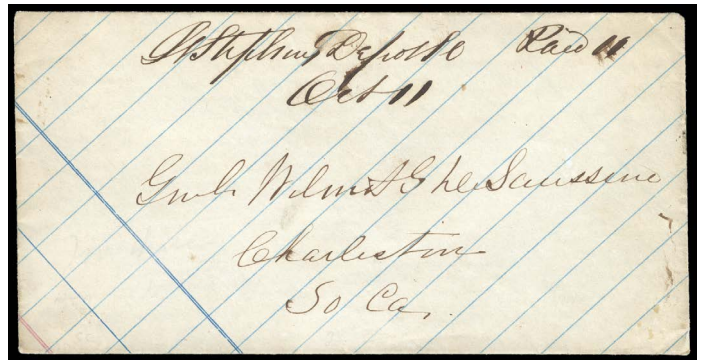 St Stephens Depot SC Paid 10
Oct 11
Wilmot G DeSaussure
Charleston
So Ca.